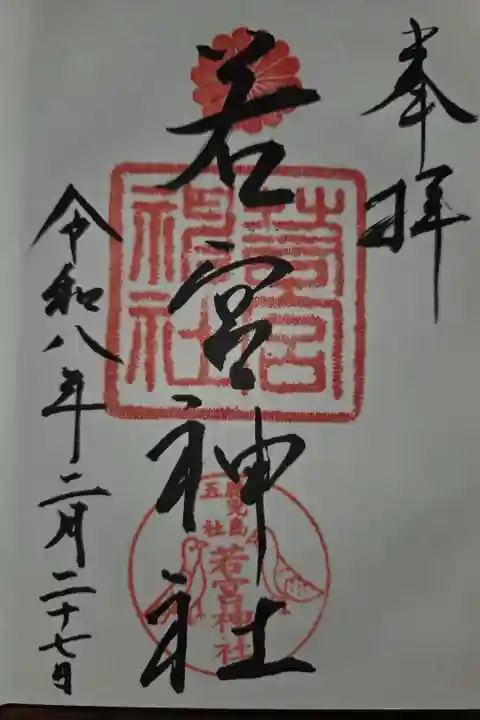 奉拝
若宮神社
令和八年二月二十七日
鹿児島
五社
若宮神社